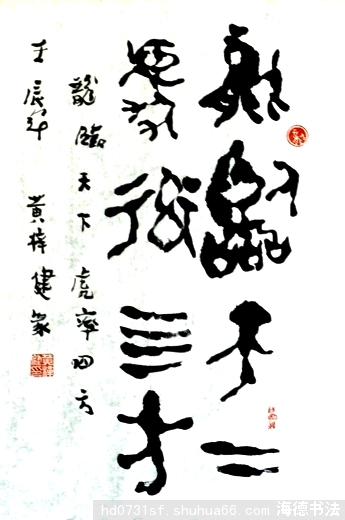 龍臨天下
虎率四方
龍臨天下虎率四方
壬辰年 黄梓健篆
hd0731sf.shuhua66.com 海德书法